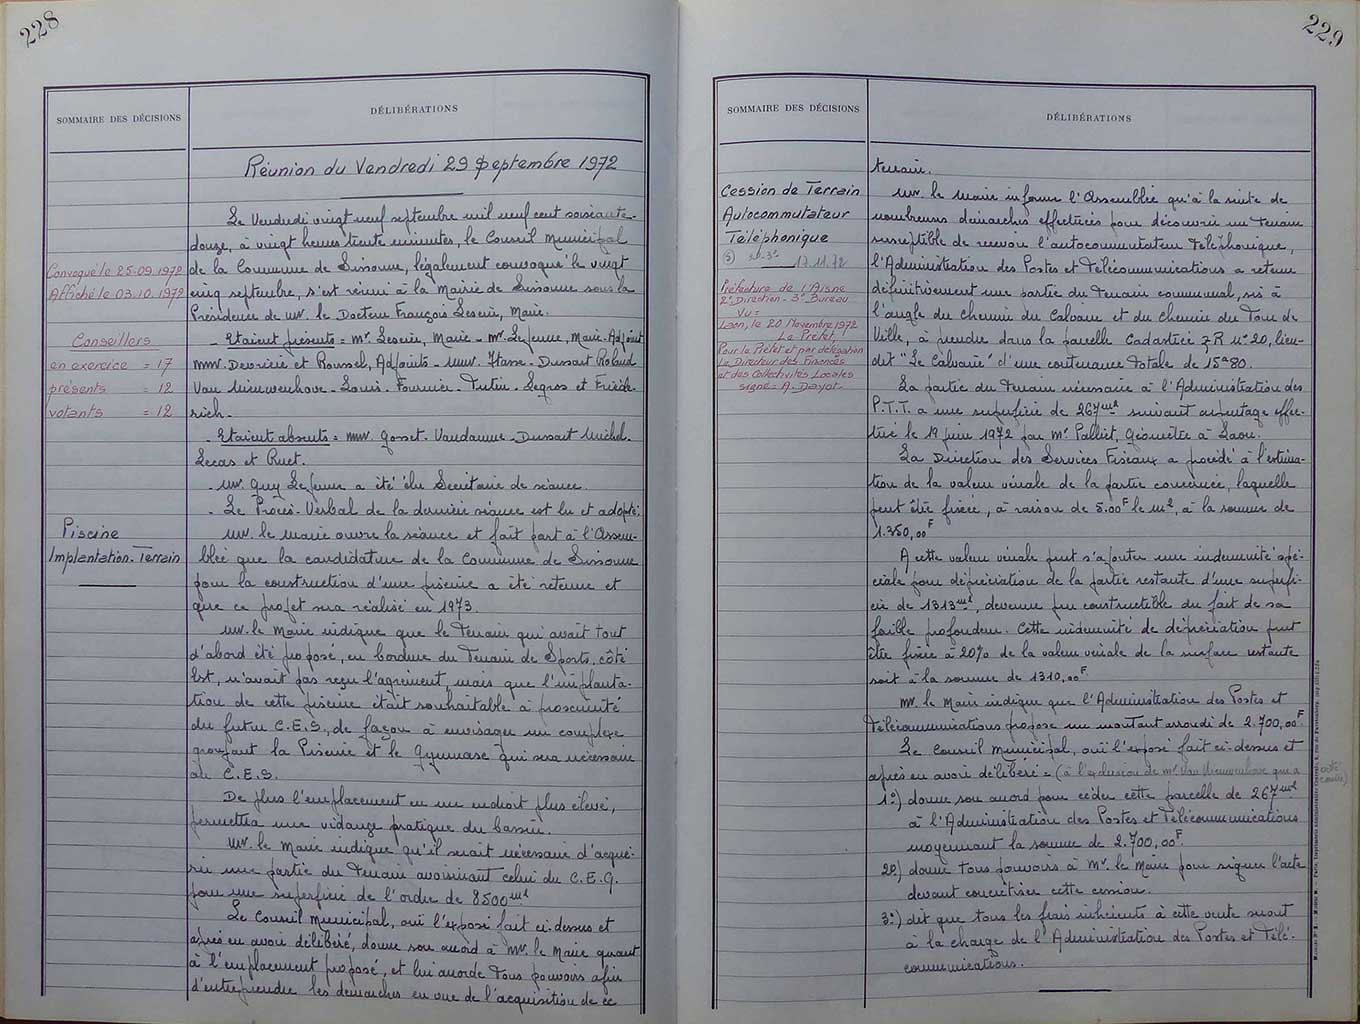 228
SOMMAIRE DES DÉCISIONS
DÉLIBÉRATIONS
Réunion du Vendredi 29 Septembre 1972
Convoqué le 25.09.1972
Affiché le 03.10.1972
Conseillers
en exercice = 17
présents = 12
votants = 12
Piscine
Implantation. Terrain
Le Vendredi vingt neuf septembre mil neuf cent soixante-
douze, à vingt heures trente minutes, le Conseil Municipal
de la Commune de Sissonne, légalement convoqué le vingt
cinq septembre, s'est réuni à la Mairie de Sissonne sous la
Présidence de Mr. le Docteur François Lesein, Maire.
- Etaient présents = Mr. Lesein, Maire - Mr. Lejeune, Maire-Adjoint
MM. Devorine et Roussel, Adjoints - MM. Hasse - Dussart Roland
Van Nieuwenhove - Louis - Fournier - Tutin - Legros et Friede-
rich.
- Etaient absents = MM. Gosset - Vandamme - Dussart Michel.
Lecas et Ruet.
- Mr. Guy Lejeune a été élu Secrétaire de séance.
- Le Procès-Verbal de la dernière séance est lu et adopté.
Mr. le Maire ouvre la séance et fait part à l'Assem-
blée que la candidature de la Commune de Sissonne
pour la construction d'une piscine a été retenue et
que ce projet sera réalisé en 1973.
Mr. le Maire indique que le Terrain qui avait tout
d'abord été proposé, en bordure du Terrain de Sports, côté
Est, n'avait pas reçu l'agrément, mais que l'implanta-
tion de cette piscine était souhaitable à proximité
du futur C.E.S., de façon à envisager un complexe
groupant la Piscine et le Gymnase qui sera nécessaire
au C.E.S.
De plus l'emplacement en un endroit plus élevé,
permettra une vidange pratique du bassin.
Mr. le Maire indique qu'il serait nécessaire d'acqué-
rir une partie du Terrain avoisinant celui du C.E.G.
pour une superficie de l'ordre de 8500 m2
Le Conseil Municipal, ouï l'exposé fait ci-dessus et
après en avoir délibéré, donne son accord à Mr. le Maire quant
à l'emplacement proposé, et lui accorde tous pouvoirs afin
d'entreprendre les démarches en vue de l'acquisition de ce
229
SOMMAIRE DES DÉCISIONS
DÉLIBÉRATIONS
Cession de Terrain
Autocommutateur
Téléphonique
17.11.72
Préfecture de l'Aisne
2e Direction - 3e Bureau
Vu =
Laon, le 20 Novembre 1972
Le Préfet,
Pour le Préfet et par délégation
Le Directeur des Finances
et des Collectivités Locales
signé = A. Dayot -
terrain.
Mr. le Maire informe l'Assemblée qu'à la suite de
nombreuses démarches effectuées pour découvrir un terrain
susceptible de recevoir l'autocommutateur Téléphonique,
l'Administration des Postes et Télécommunications a retenu
définitivement une partie du Terrain communal, sis à
l'angle du Chemin du Calvaire et du Chemin du Tour de
Ville, à prendre dans la parcelle Cadastrée ZR n° 20, lieu-
dit "Le Calvaire" d'une contenance totale de 15a80.
La partie du Terrain nécessaire à l'Administration des
P.T.T. a une superficie de 267 m2 suivant arpentage effec-
tué le 19 juin 1972 par Mr Palliet, Géomètre à Laon.
La Direction des Services Fiscaux a procédé à l'estima-
tion de la valeur vénale de la partie concernée, laquelle
peut être fixée, à raison de 5.00F le m2, à la somme de
1.350,00F
A cette valeur vénale peut s'ajouter une indemnité spé-
ciale pour dépréciation de la partie restante d'une superfi-
cie de 1313 m2, devenue peu constructible du fait de sa
faible profondeur. Cette indemnité de dépréciation peut
être fixée à 20% de la valeur vénale de la surface restante
soit à la somme de 1310,00F.
Mr. le Maire indique que l'Administration des Postes et
Télécommunications propose un montant arrondi de 2.700,00F
Le Conseil Municipal, ouï l'exposé fait ci-dessus et
après en avoir délibéré = (à l'exclusion de Mr Van Nieuwenhove qui a
1°) donne son accord pour céder cette parcelle de 267 m2
à l'Administration des Postes et Télécommunications
moyennant la somme de 2.700,00F.
2°) donne tous pouvoirs à Mr. le Maire pour signer l'acte
devant concrétiser cette cession.
3°) dit que tous les frais inhérents à cette vente seront
à la charge de l'Administration des Postes et Télé-
communications.